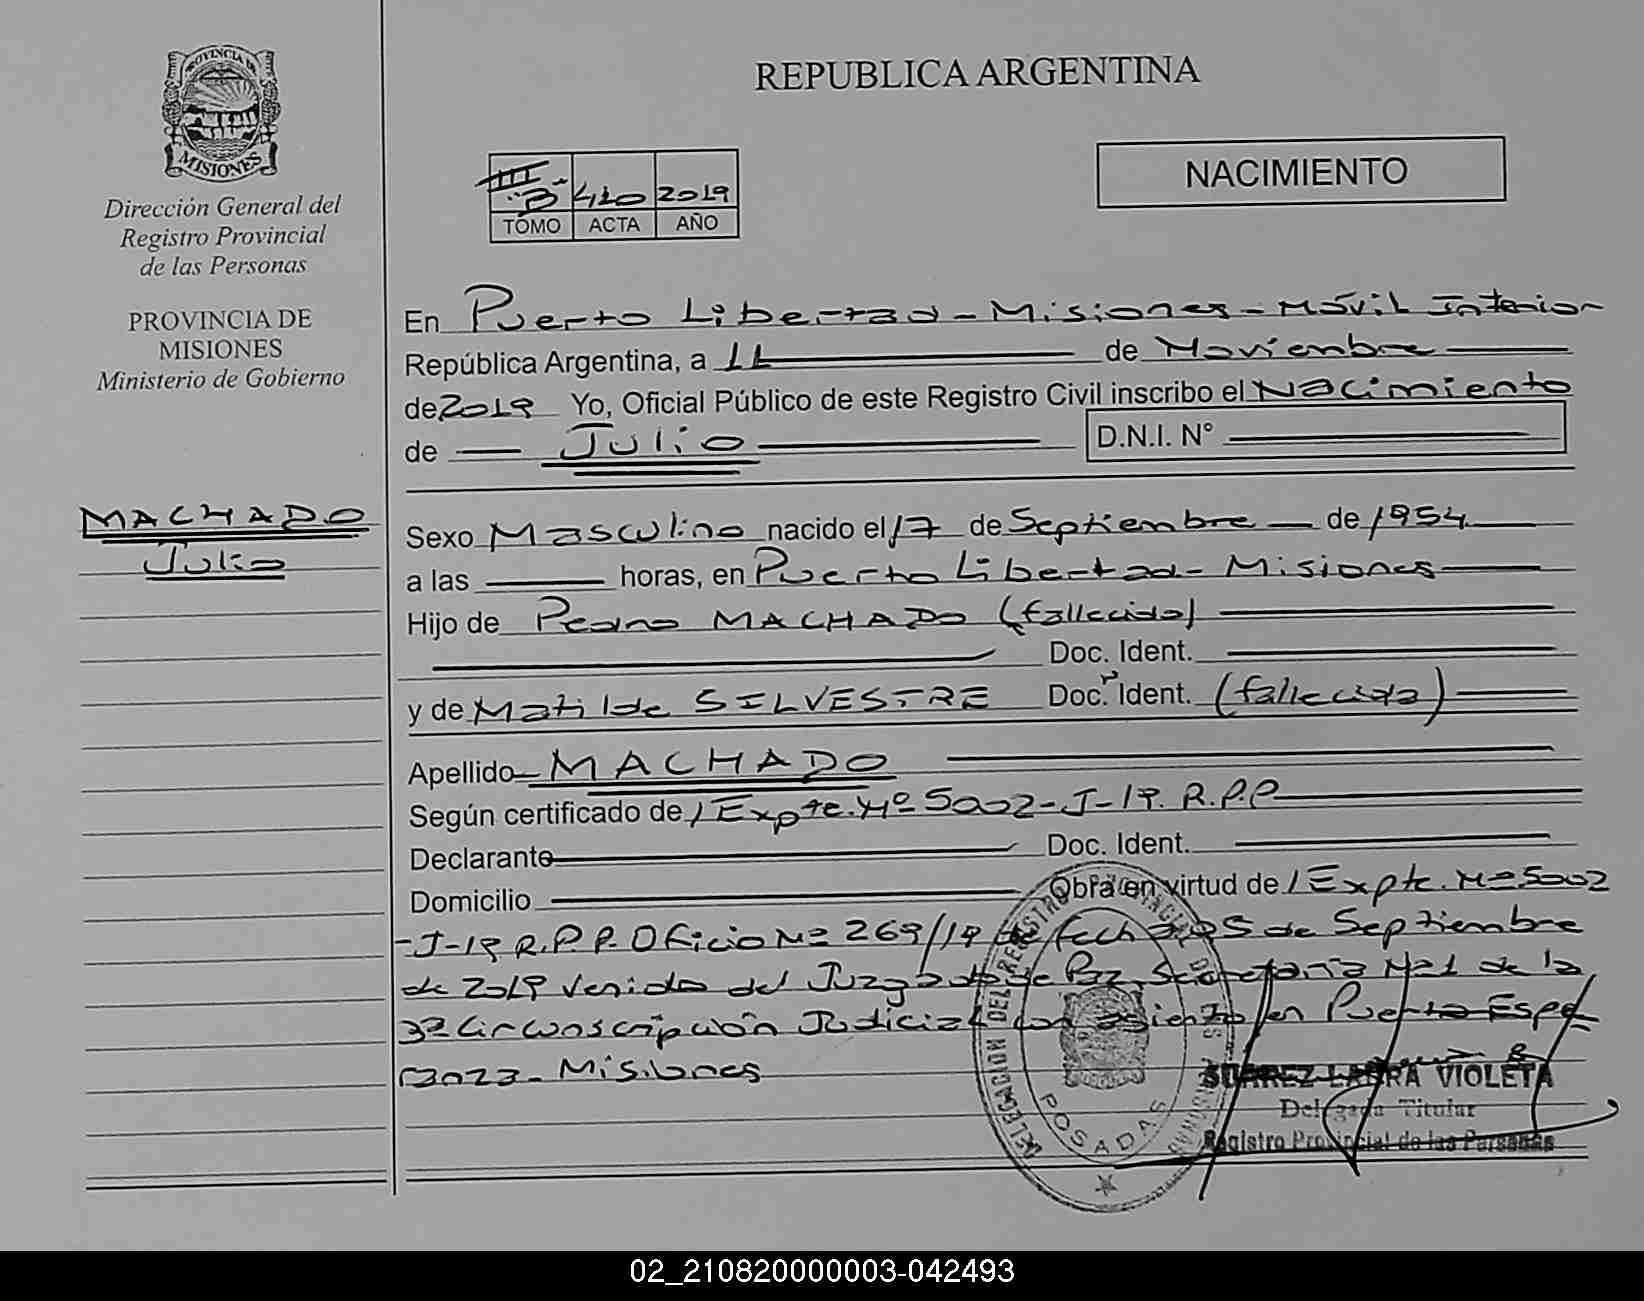 PROVINCIA DE
MISIONES
Dirección General del
Registro Provincial
de las Personas
PROVINCIA DE
MISIONES
Ministerio de Gobierno
MACHADO
Julio
REPUBLICA ARGENTINA
NACIMIENTO
III
"B" 410 2019
TOMO ACTA AÑO
En Puerto Libertad - Misiones - Móvil Interior
República Argentina, a 11 de Noviembre
de 2019 Yo, Oficial Público de este Registro Civil inscribo el Nacimiento
de Julio D.N.I. N°
Sexo Masculino nacido el 17 de Septiembre de 1954
a las horas, en Puerto Libertad - Misiones
Hijo de Pedro MACHADO (fallecido)
Doc. Ident.
y de Matilde SILVESTRE Doc. Ident. (fallecida)
Apellido MACHADO
Según certificado de / Expte. Nº 5002-J-19. R.P.P
Declarante Doc. Ident.
Domicilio Obra en virtud de / Expte. Nº 5002
-J-19 R.P.P. Oficio Nº 269/19 de fecha 05 de Septiembre
de 2019 venido del Juzgado de Paz, Secretaría Nº1 de la
3º Circunscripción Judicial con asiento en Puerto Espe
ranza - Misiones
DELEGACION DEL REGISTRO PROVINCIAL DE LAS PERSONAS
POSADAS
SUAREZ LAURA VIOLETA
Delegada Titular
Registro Provincial de las Personas
02_210820000003-042493